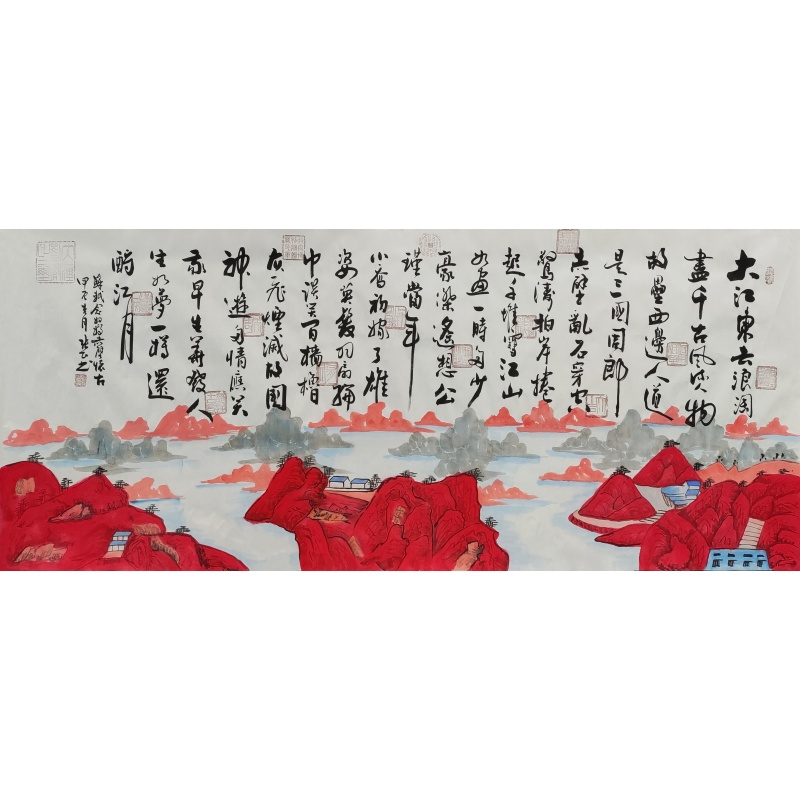 大江東去浪淘
盡千古風流物
故壘西邊人道
是三國周郎
赤壁亂石穿空
驚濤拍岸捲
起千堆雪江山
如畫一時多少
豪傑遙想公
瑾當年
小喬初嫁了雄
姿英發羽扇綸
巾談笑間檣櫓
灰飛煙滅故國
神遊多情應笑
我早生華發人
生如夢一樽還
酹江月
蘇軾念奴嬌懷古